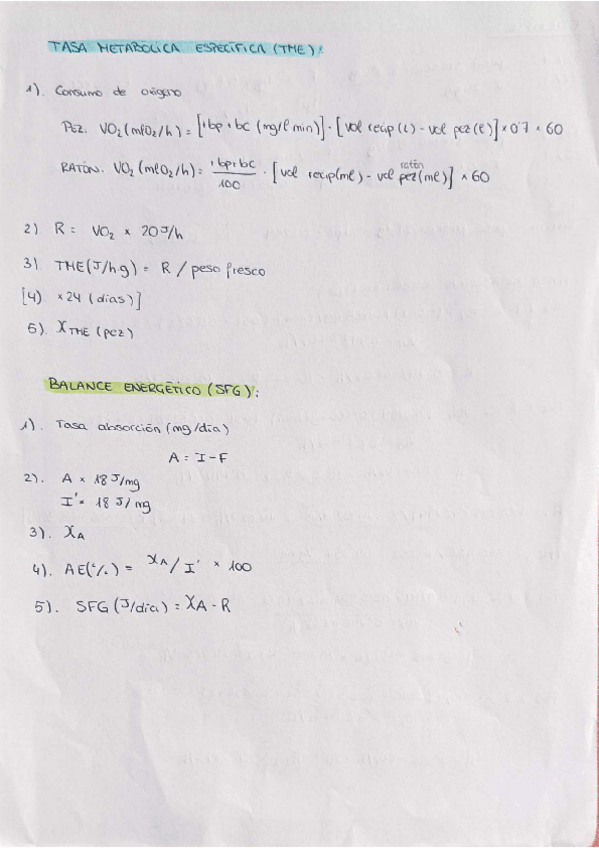 TASA METABÓLICA ESPECÍFICA (TME):
1). Consumo de oxígeno
PEZ. VO₂ (mlO₂/h) = [ˈbpˈbc (mg/l min)] · [vol recip (l) - vol pez (l)] × 0'7 × 60
RATÓN. VO₂ (mlO₂/h) = ˈbpˈbc / 100 · [vol recip (ml) - vol ratón pez (ml)] × 60
2) R = VO₂ × 20 J/h
3) TME (J/hg) = R / peso fresco
[4) ×24 (días)]
5). X TME (pez)
BALANCE ENERGÉTICO (SFG):
1). Tasa absorción (mg/día)
A = I - F
2). A × 18 J/mg
I' × 18 J/mg
3). X A
4). AE (%) = X A / I' × 100
5). SFG (J/día) = X A - R